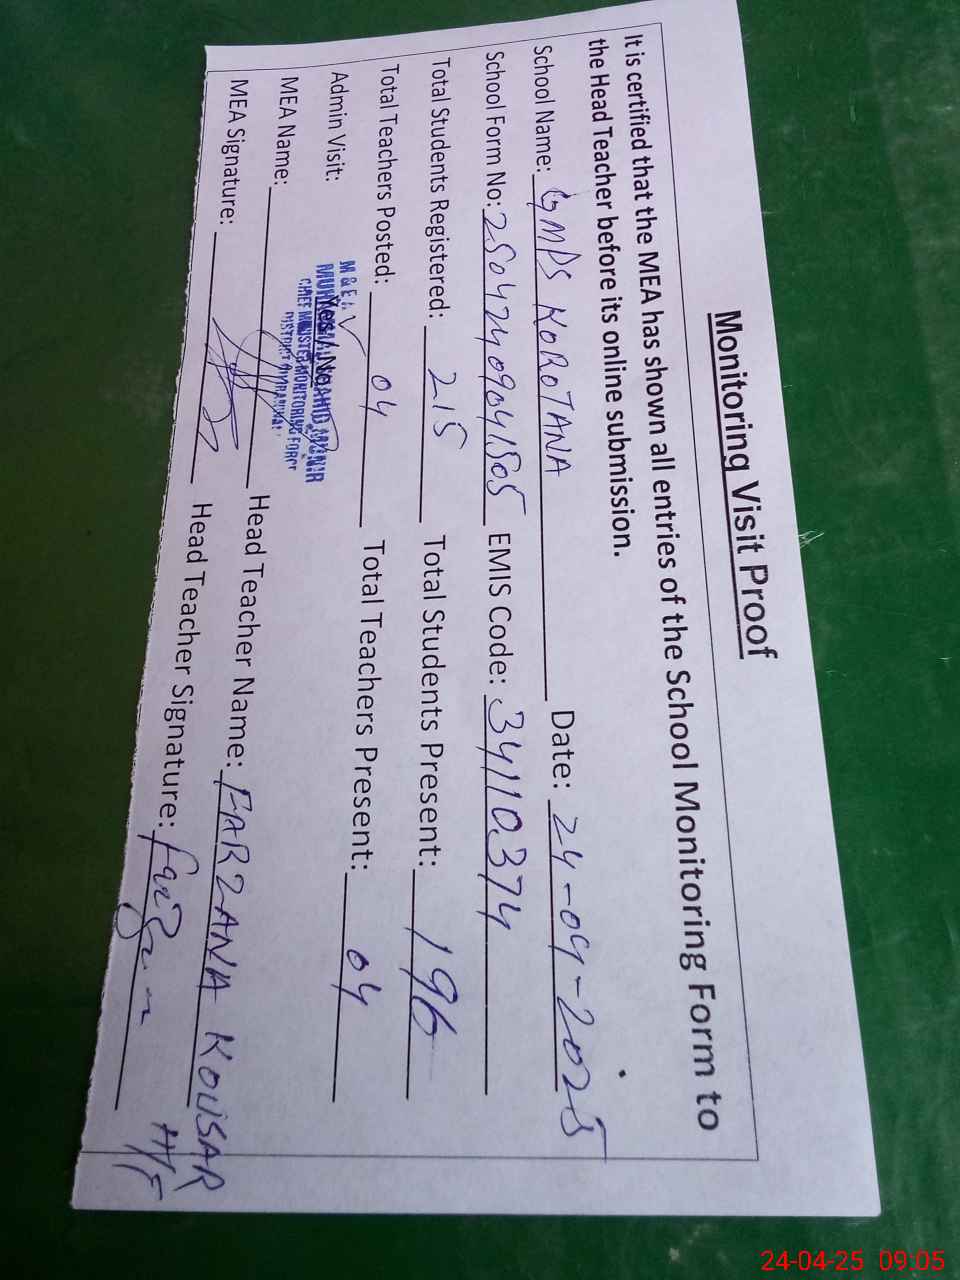 Monitoring Visit Proof
It is certified that the MEA has shown all entries of the School Monitoring Form to
the Head Teacher before its online submission.
School Name: GMPS KOROTANA Date: 24-04-2025
School Form No: 25042409041505 EMIS Code: 34110374
Total Students Registered: 215 Total Students Present: 196
Total Teachers Posted: 04 Total Teachers Present: 04
Admin Visit: Yes / No
M & E A
MUNIR
CHIEF MINISTER MONITORING FORCE
DISTRICT
MEA Name: Head Teacher Name: FARZANA KOUSAR
MEA Signature: Head Teacher Signature:
24-04-25 09:05